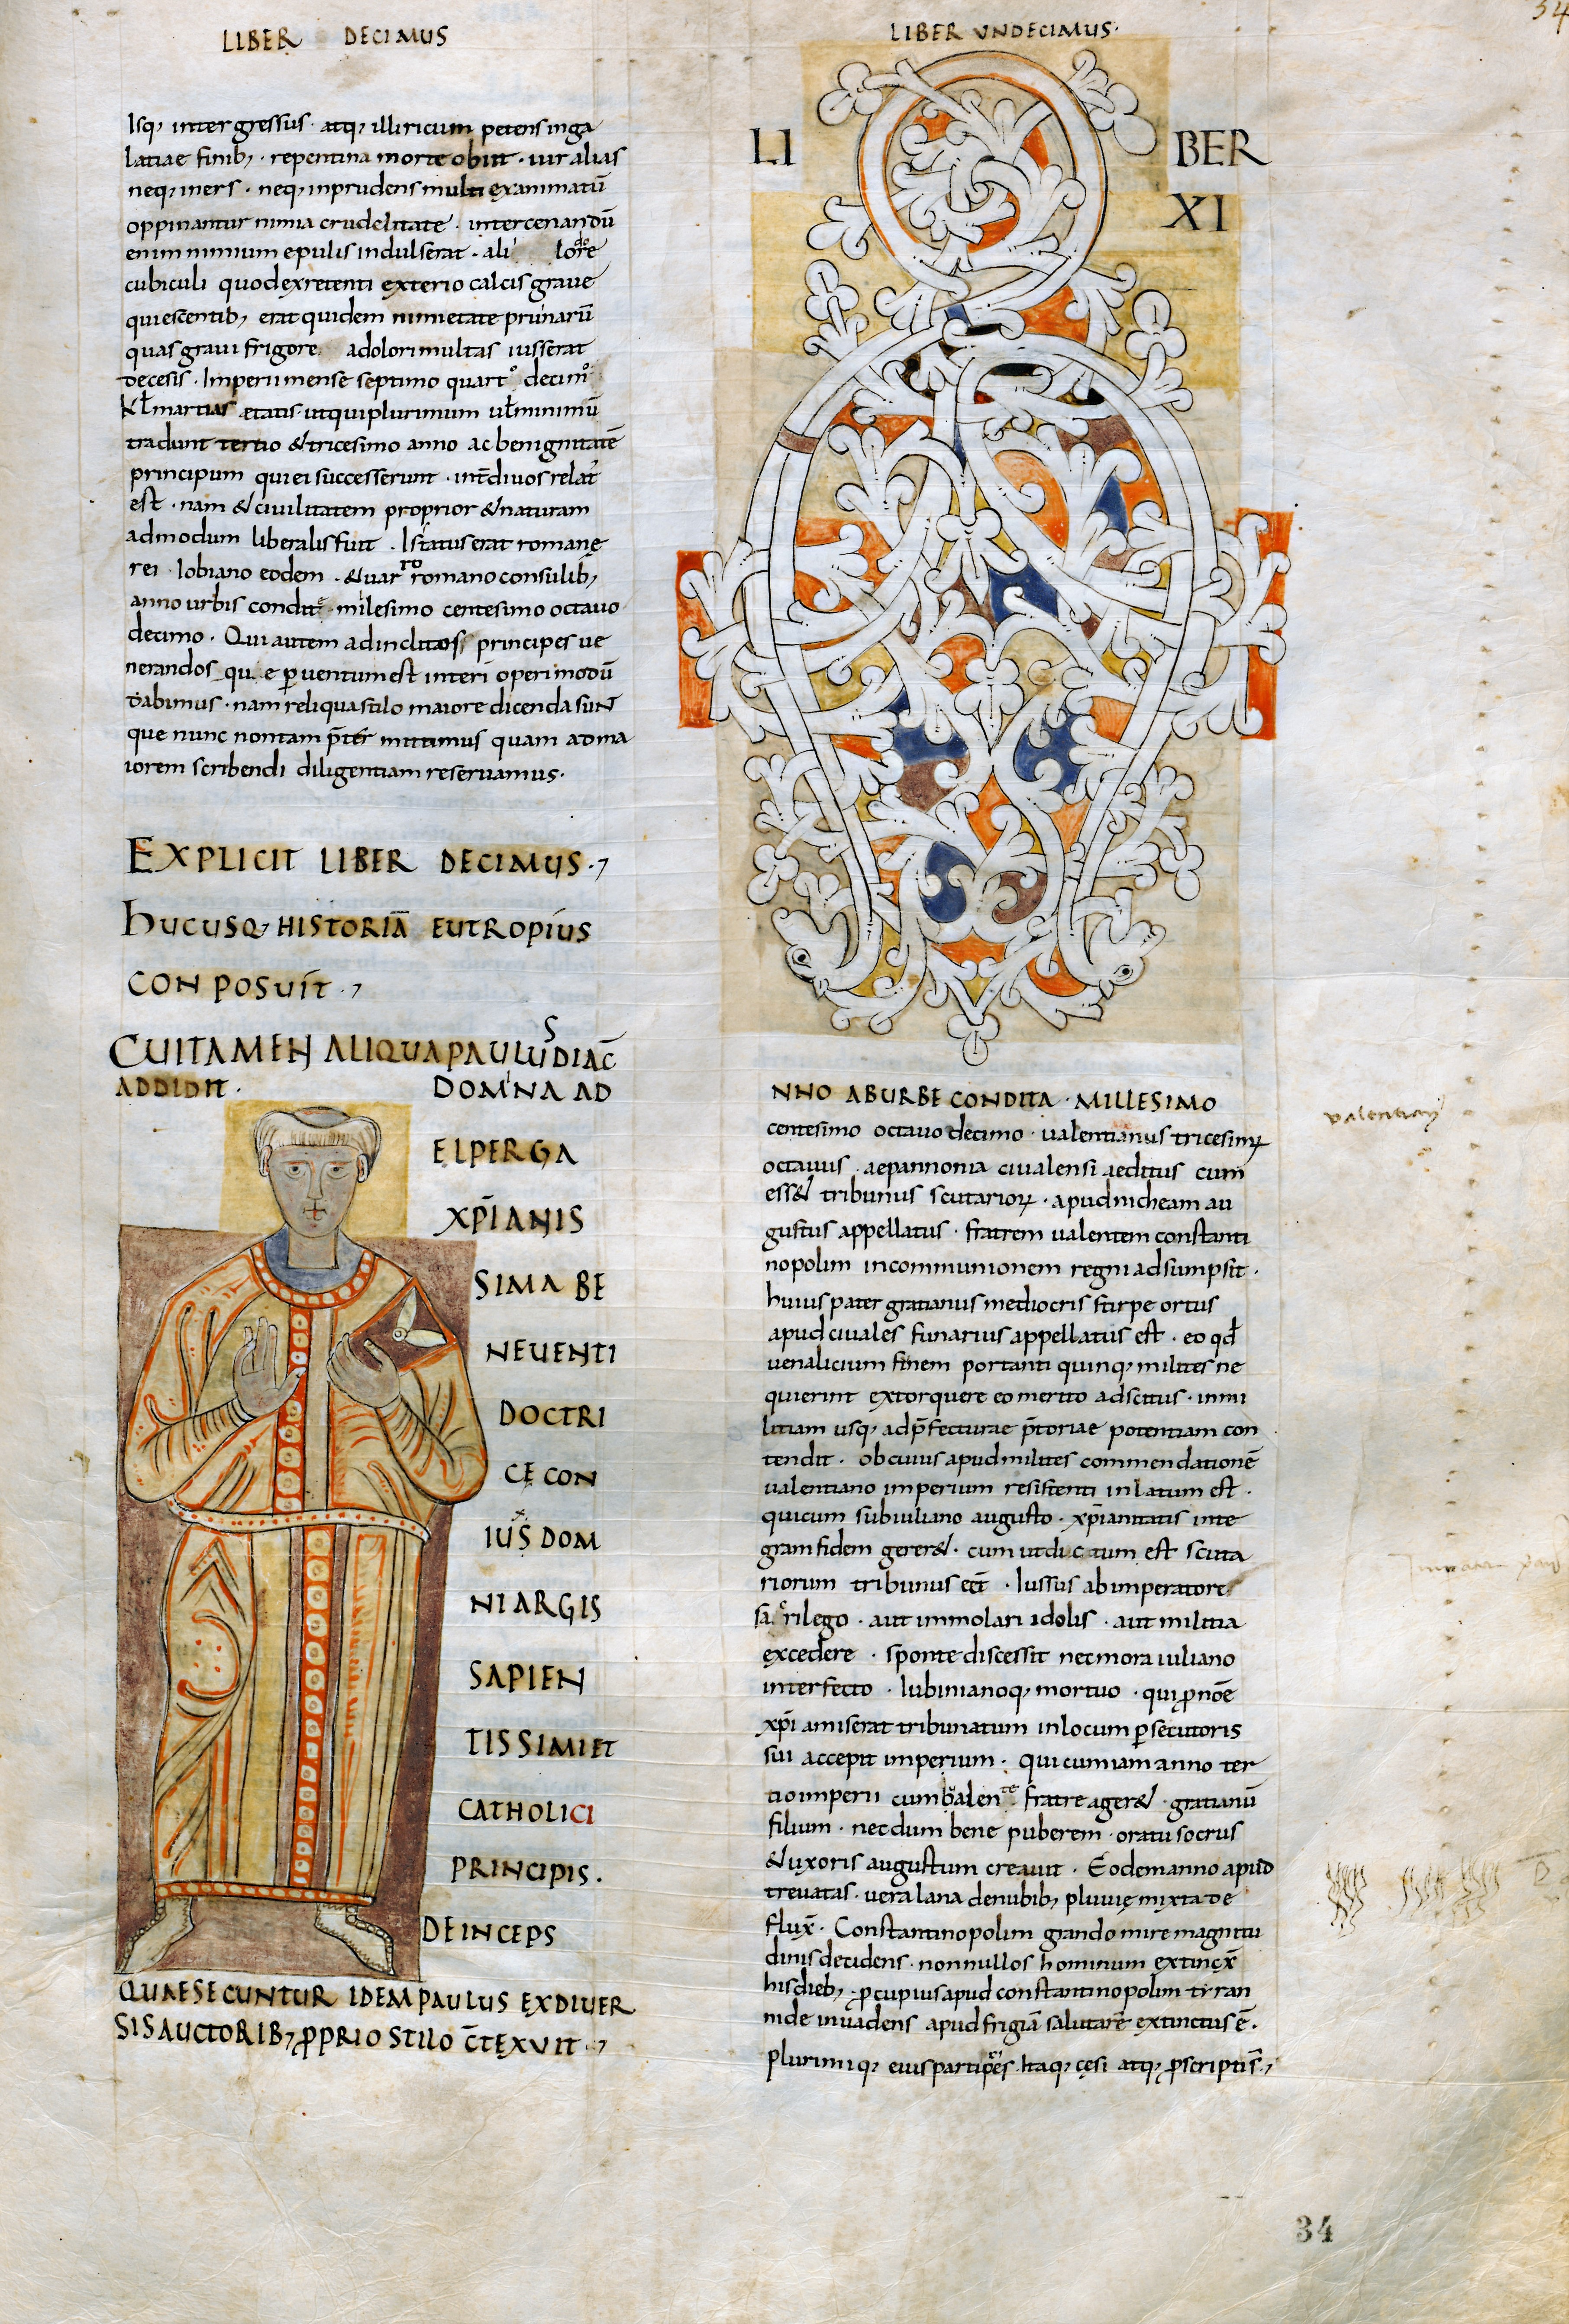 LIBER DECIMUS
Isq, inter gressus · atq, illiricum petens inga
latiae finib, · repentina morte obiit · uir alias
neq, iners · neq, inprudens multi exanimatū
oppinantur nimia crudelitate · inter cenandū
enim nimium epulis indulserat · ali lore
cubiculi quod ex retenti exterio calcis graue
quiescentib, erat quidem nimietate prunarū
quas graui frigore adolori multas iusserat
decesis · Imperii mense septimo quarto decimo
kƚ martias etatis utqui plurimum uƚ minimū
tradunt tertio & tricesimo anno ac benignitatē
principum qui ei successerunt · int diuos relat
est · nam & ciuilitatem proprior & naturam
admodum liberalis fuit · Is status erat romanę
rei · Iobiano eodem · & uarro romano consulib,
anno urbis condite · milesimo centesimo octauo
decimo · Qui autem ad inclitos principes ue
nerandos qu e puentum est interi operi modū
dabimus · nam reliqua stilo maiore dicenda sunt
que nunc non tam p̄ter mittimus quam ad ma
iorem scribendi diligentiam reseruamus ·
EXPLICIT LIBER DECIMUS ·,
HUCUSQ, HISTORIĀ EUTROPIUS
CONPOSUIT ·,
CUI TAMEN ALIQUA PAULUS DIAC̄
ADDIDIT · DOMNA AD
ELPERGA
XP̄IANIS
SIMA BE
NEUENTI
DOCTRI
CĘ CON
IUS DOM
NI ARGIS
SAPIEN
TISSIMI ET
CATHOLICI
PRINCIPIS .
DEINCEPS
QUAE SECUNTUR IDEM PAULUS EX DIUER
SIS AUCTORIB, PPRIO STILO C̄TEXUIT ·,
LIBER UNDECIMUS ·
LI BER
XI
NNO AB URBE CONDITA · MILLESIMO
centesimo octauo decimo · ualentianus tricesimꝝ
octauus · ae pannonia ciualensi aeditus cum
ess& tribunus scutarioꝝ · apud nicheam au
gustus appellatus · fratrem ualentem constanti
nopolim in communionem regni adsumpsit ·
huius pater gratianus mediocris stirpe ortus
apud ciuales funarius appellatus est · eo qđ
uenalicium funem portanti quinq, milites ne
quierint extorquere eo merito adscitus · inmi
litiam usq, ad p̄fecturae p̄toriae potentiam con
tendit · ob cuius apud milites commendationē
ualentiano imperium resistenti inlatum est ·
qui cum sub iuliano augusto · xp̄ianitatis inte
gram fidem gerer& · cum ut dictum est scuta
riorum tribunus eēt · Iussus ab imperatore
sacrilego · aut immolari idolis · aut militia
excedere · sponte discessit nec mora iuliano
interfecto · Iubinianoq, mortuo · qui p nōe
xp̄i amiserat tribunatum in locum psecutoris
sui accepit imperium · Qui cum iam anno ter
tio imperii cum ualente fratre ager& · gratianū
filium · necdum bene puberem · oratu socrus
& uxoris augustum creauit · Eodem anno apud
treuatas · uera lana de nubib, pluuię mixta de
flux̄ · Constantinopolim grando mire magnitu
dinis decidens · nonnullos hominum extinx̄
his dieb, · pcupius apud constantinopolim tyran
nide inuadens apud frigiā salutarē extinctus ē ·
plurimiq, eius partipes · Itaq, cęsi atq, pscriptis ·,
34